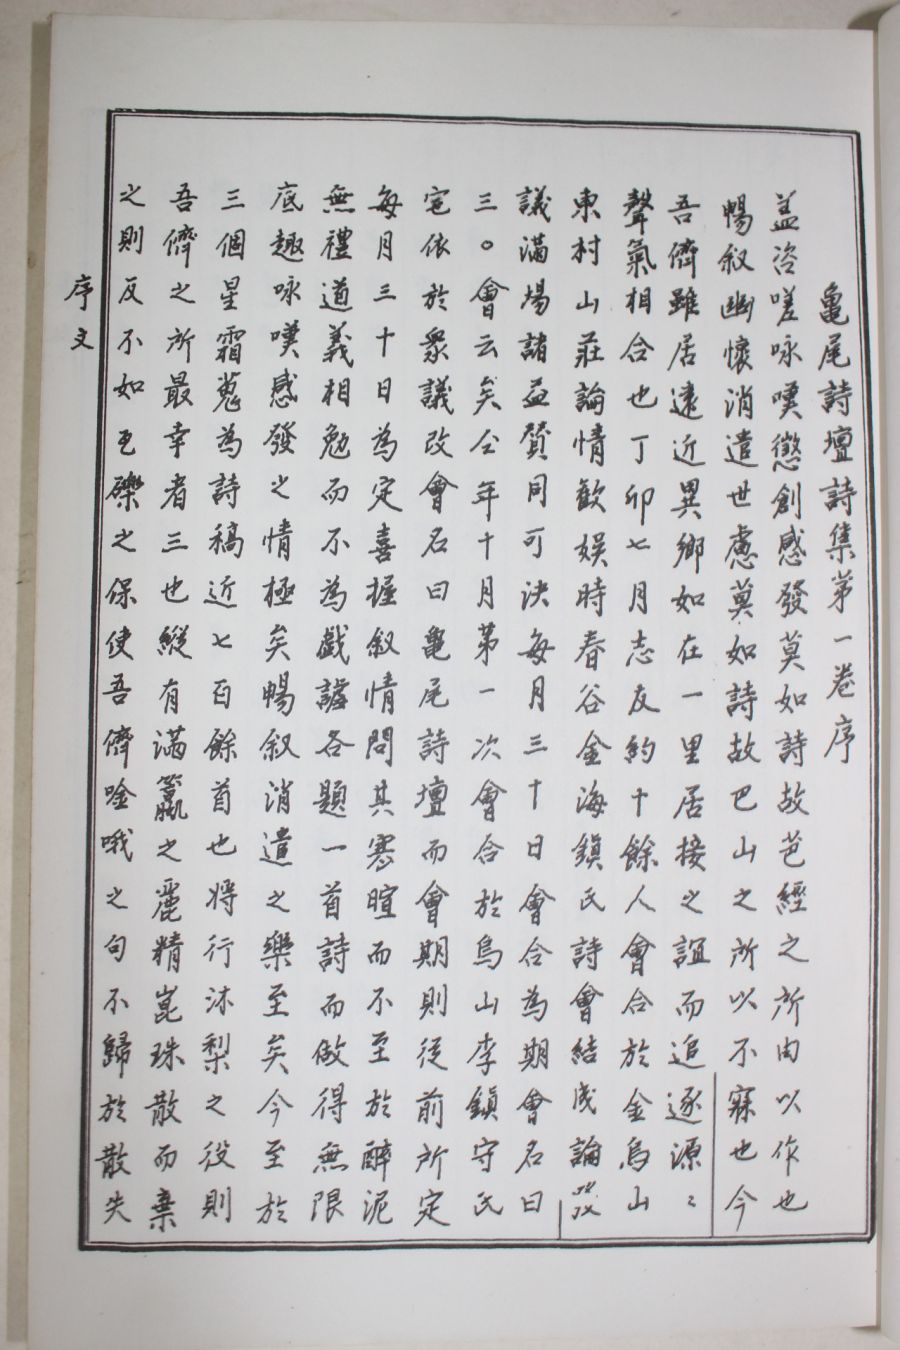 亀尾詩壇詩集第一卷序
盖咨嗟咏嘆懲創感發莫如詩故芭經之所由以作也
暢叙幽懷消遣世慮莫如詩故巴山之所以不寐也今
吾儕雖居遠近異鄉如在一里居接之誼而追逐源〻
聲氣相合也丁卯七月志友約十餘人會合於金烏山
東村山莊論情歡娛時春谷金海鎭氏詩會結成論
議滿場諸益賛同可決每月三十日會合為期會名曰
三〇會云矣仝年十月第一次會合於烏山李鎭守氏
宅依於衆議改會名曰亀尾詩壇而會期則從前所定
每月三十日為定喜握叙情問其寒暄而不至於醉泥
無禮道義相勉而不為戲謔各題一首詩而做得無限
底趣咏嘆感發之情極矣暢叙消遣之樂至矣今至於
三個星霜蒐為詩稿近七百餘首也將行沐梨之役則
吾儕之所最幸者三也縱有滿籯之麗精崑珠散而棄
之則反不如瓦礫之保使吾儕唫哦之句不歸於散失
序文